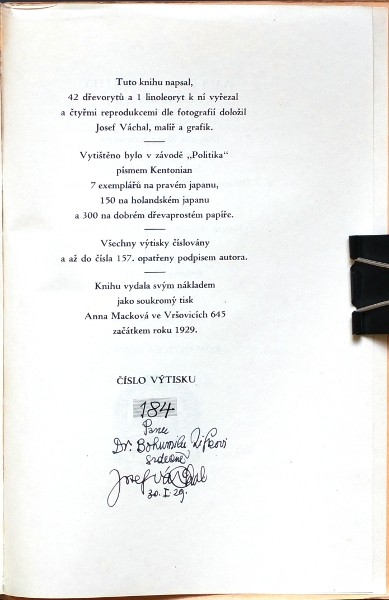 Tuto knihu napsal,
42 dřevorytů a 1 linoleoryt k ní vyřezal
a čtyřmi reprodukcemi dle fotografií doložil
Josef Váchal, malíř a grafik.
Vytištěno bylo v závodě „Politika“
písmem Kentonian
7 exemplářů na pravém japanu,
150 na holandském japanu
a 300 na dobrém dřevaprostém papíře.
Všechny výtisky číslovány
a až do čísla 157. opatřeny podpisem autora.
Knihu vydala svým nákladem
jako soukromý tisk
Anna Macková ve Vršovicích 645
začátkem roku 1929.
ČÍSLO VÝTISKU
184
Panu
Dr. Bohumilu
srdečně
Josef Váchal
30. I. 29.